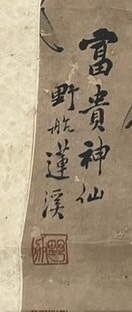 富貴神仙
野航蓮溪